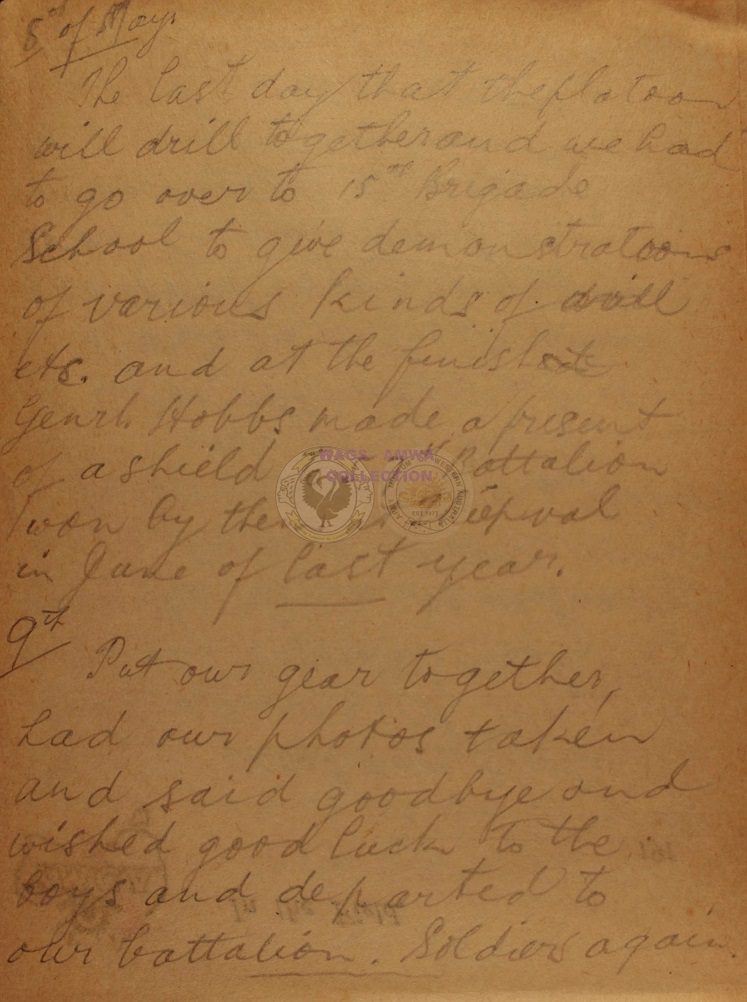 8th of May.
The last day that the platoon
will drill together and we had
to go over to 15th Brigade
School to give demonstrations
of various kinds of drill
etc. and at the finish
Genrl. Hobbs made a present
of a shield Battalion
won by them
in June of last year.
9th
Put our gear together,
had our photos taken
and said goodbye and
wished good luck to the
boys and departed to
our battalion. Soldiers again.
WAGS AMWA
COLLECTION